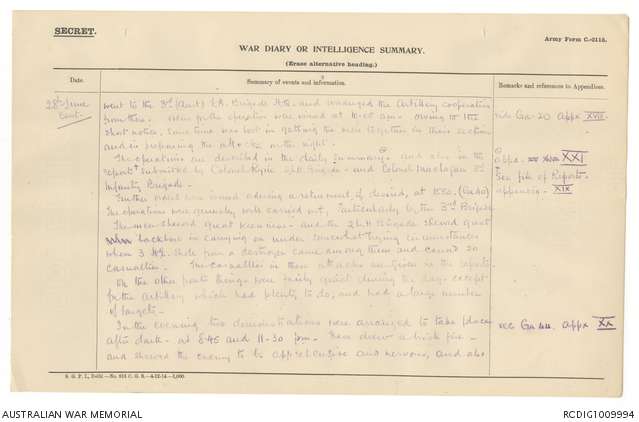 SECRET.
Army Form C.-2118.
WAR DIARY OR INTELLIGENCE SUMMARY.
(Erase alternative heading.)
Date.
Summary of events and information.
Remarks and references to Appendices.
28th June
cont.
went to the 3rd (Aust) F.A. Brigade HQ. and arranged the Artillery cooperation
from there. Orders for the operation were issued at
short notice, some time was lost in getting the men together in their section
and in preparing the attack on the right.
vide Ga-20 Appx XVIII
The operations are described in the daily summary and also in the
reports submitted by Colonel Ryrie 2/LH Brigade - and Colonel Maclagan 3rd
Infantry Brigade -
appx XXI
See file of Reports -
appendix - XIX
Further orders were issued advising a retirement, if desired, at
The operations were generally well carried out, particularly by the 3rd Brigade
The men shewed great keenness - and the 2 L.H. Brigade shewed great
backbone in carrying on under somewhat trying circumstances
when 3 H.E. shells from a destroyer came among them and caused 20
casualties. The casualties in these attacks are given in the reports.
On the other parts things were fairly quiet during the day - except
for the artillery which had plenty to do, and had a large number
of targets.
In the evening two demonstrations were arranged to take place
after dark - at 8.45 and 11-30 pm. These drew a brisk fire -
and shewed the enemy to be apprehensive and nervous, and also
vide Ga 44. appx XX
S. G. P. I., Delhi.—No.
AUSTRALIAN WAR MEMORIAL
RCDIG1009994